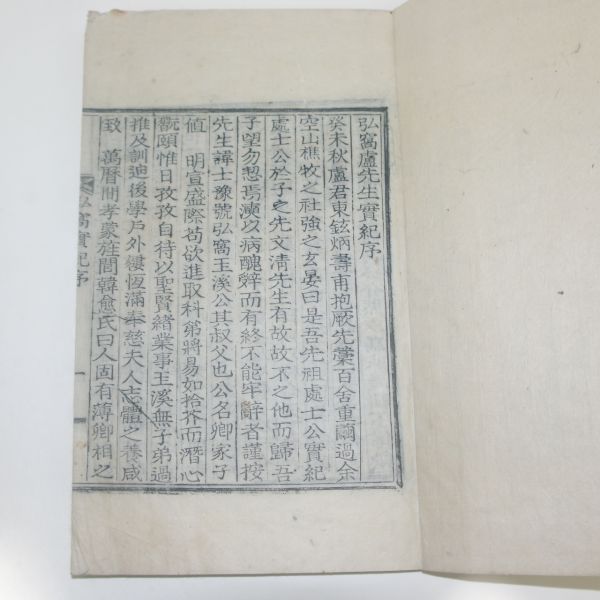 弘窩盧先生實紀序
癸未秋盧君東鉉炳壽甫抱厥先藁百舍重繭過余
空山樵牧之社強之玄晏曰是吾先祖處士公實紀
處士公於子之先文清先生有故故不之他而歸吾
子望勿恝焉演以病醜辭而有終不能牢辭者謹按
先生諱士豫號弘窩玉溪公其叔父也公名卿家子
値 明宣盛際苟欲進取科第將易如拾芥而潛心
觀頤惟日孜孜自待以聖賢緖業事玉溪無子弟過
推及訓迪後學戶外縷恆滿奉慈夫人志體之養咸
致 萬曆間孝蒙旌閭韓愈氏曰人固有薄卿相之
弘窩實紀序
一